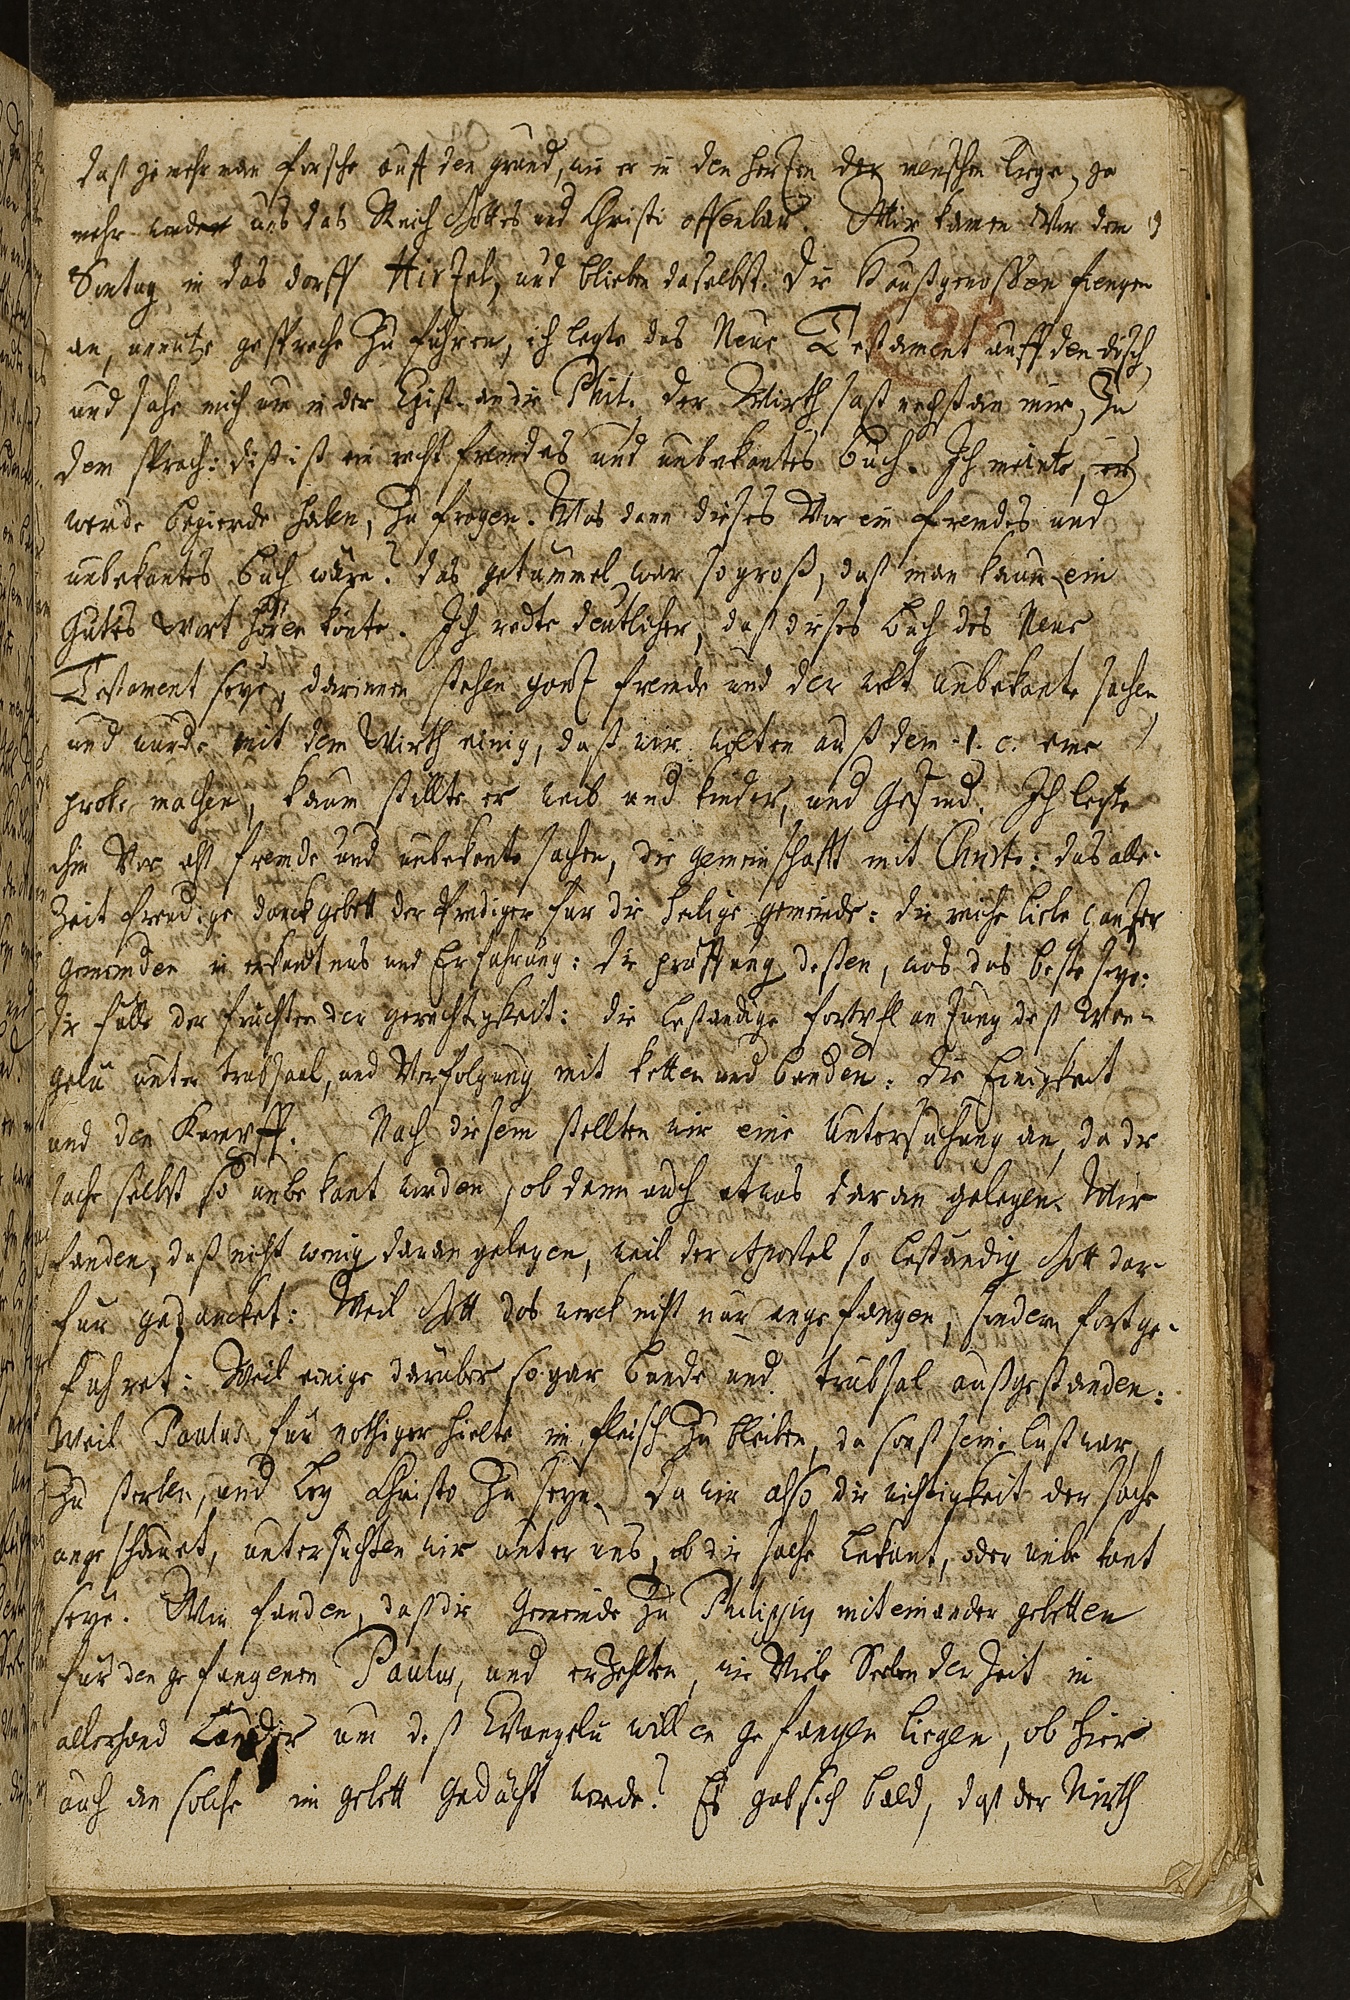 daß je mehr man forsche auff den grund, wie er in den hertzen der menschen liege, je
mehr werde uns das Reich Gottes und Christi offenbar. Wir kamen Vor dem
Sontag in das dorff Hirzel, und blieben daselbst. Die Haußgenoßen fiengen
an, unnutze gespräche Zu führen, ich legte das Neue Testament auff den disch,
und sahe mich um in der Epist. an die Phil. der Wirth saß nechst an mir, Zu
dem sprach: diß ist ein recht fremdes und unbekantes buch. Ich meinte, er
werde begierde haben, Zu fragen. Was dann dieses Vor ein fremdes und
unbekantes buch wäre? das getümmel war so groß, daß man kaum ein
Gutes Wort hören könte. Ich redte deutlicher, daß dieses buch das Neue
Testament seye, darinnen stehen gantz fremde und der welt unbekante sachen
und wurde mit dem Wirth einig, daß wir wolten auß dem 1. c. eine
probe machen, kaum stillte er weib und kinder, und Gesind. Ich legte
ihm Vor alß fremde und unbekante sachen, die gemeinschafft mit Christo: das alle-
Zeit freudige danckgebett der Prediger für die heilige gemeinde: die reiche liebe gantzer
Gemeinden in erkantnus und Erfahrung: die prüffung deßen, was das beste seye:
die fülle der früchten der gerechtigkeit: die beständige fortpflantzung deß Evan-
gelii unter trübsaal, und Verfolgung mit ketten und banden: die Einigkeit
und den Kampff. Nach diesem stellten wir eine Untersuchung an, da die
sache selbst so unbekant worden, ob dann auch etwas daran gelegen. Wir
fanden, daß nicht wenig daran gelegen, weil der Apostel so beständig Gott dar-
für gedancket: Weil Gott das werck nicht nur angefangen, sondern fortge-
führet: Weil einige darüber sogar bande und trübsal außgestanden:
Weil Paulus für nöthiger hielte im fleisch Zu bleiben, da sonst seine lust war,
Zu sterben, und bey Christo Zu seyn. Da wir also die wichtigkeit der sache
angeschauet, untersuchten wir unter uns, ob die sache bekant, oder unbekant
seye. Wir fanden, daß die Gemeinde Zu Philippis miteinander gebetten
für den gefangenen Paulus, und erzehlten, wie Viele Seelen der Zeit in
allerhand Länder um deß Evangelii willen gefangen liegen, ob hier
auch an solche im gebett gedacht werde? Es gab sich bald, daß der Wirth